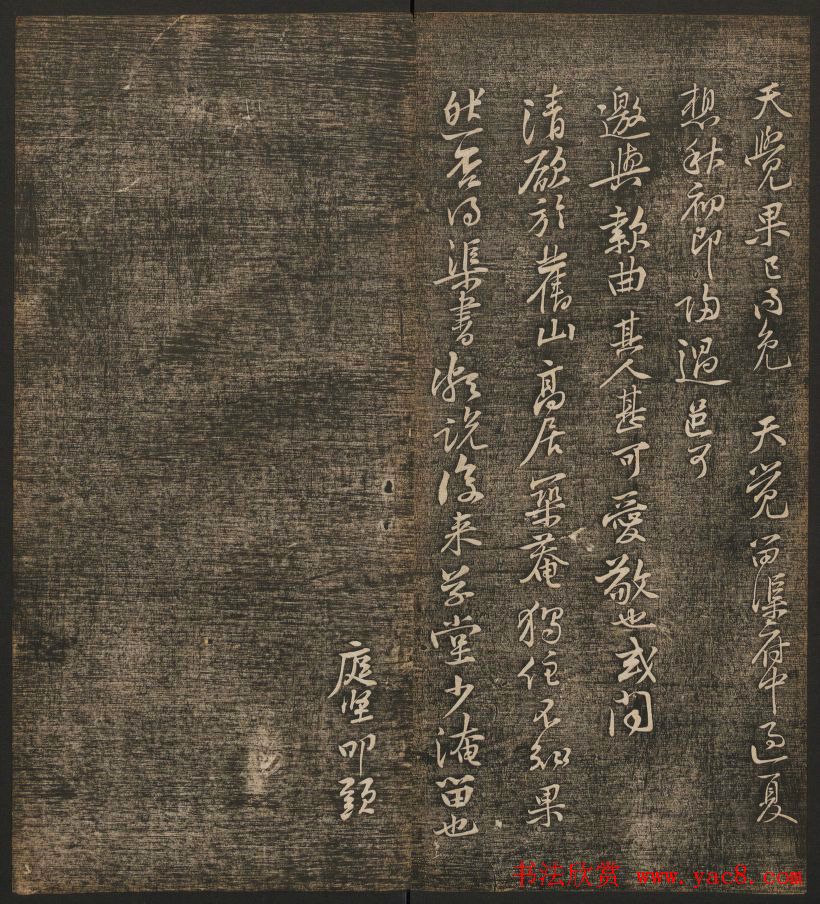 天覺果已得免 天覺留渠府中過夏
想秋初即歸過邑可
邀與款曲其人甚可愛敬也或聞
清欲於舊山高居築菴獨住不知果
然否得渠書頗說後来草堂少淹留也
庭坚叩頭
书法欣赏 www.yac8.com